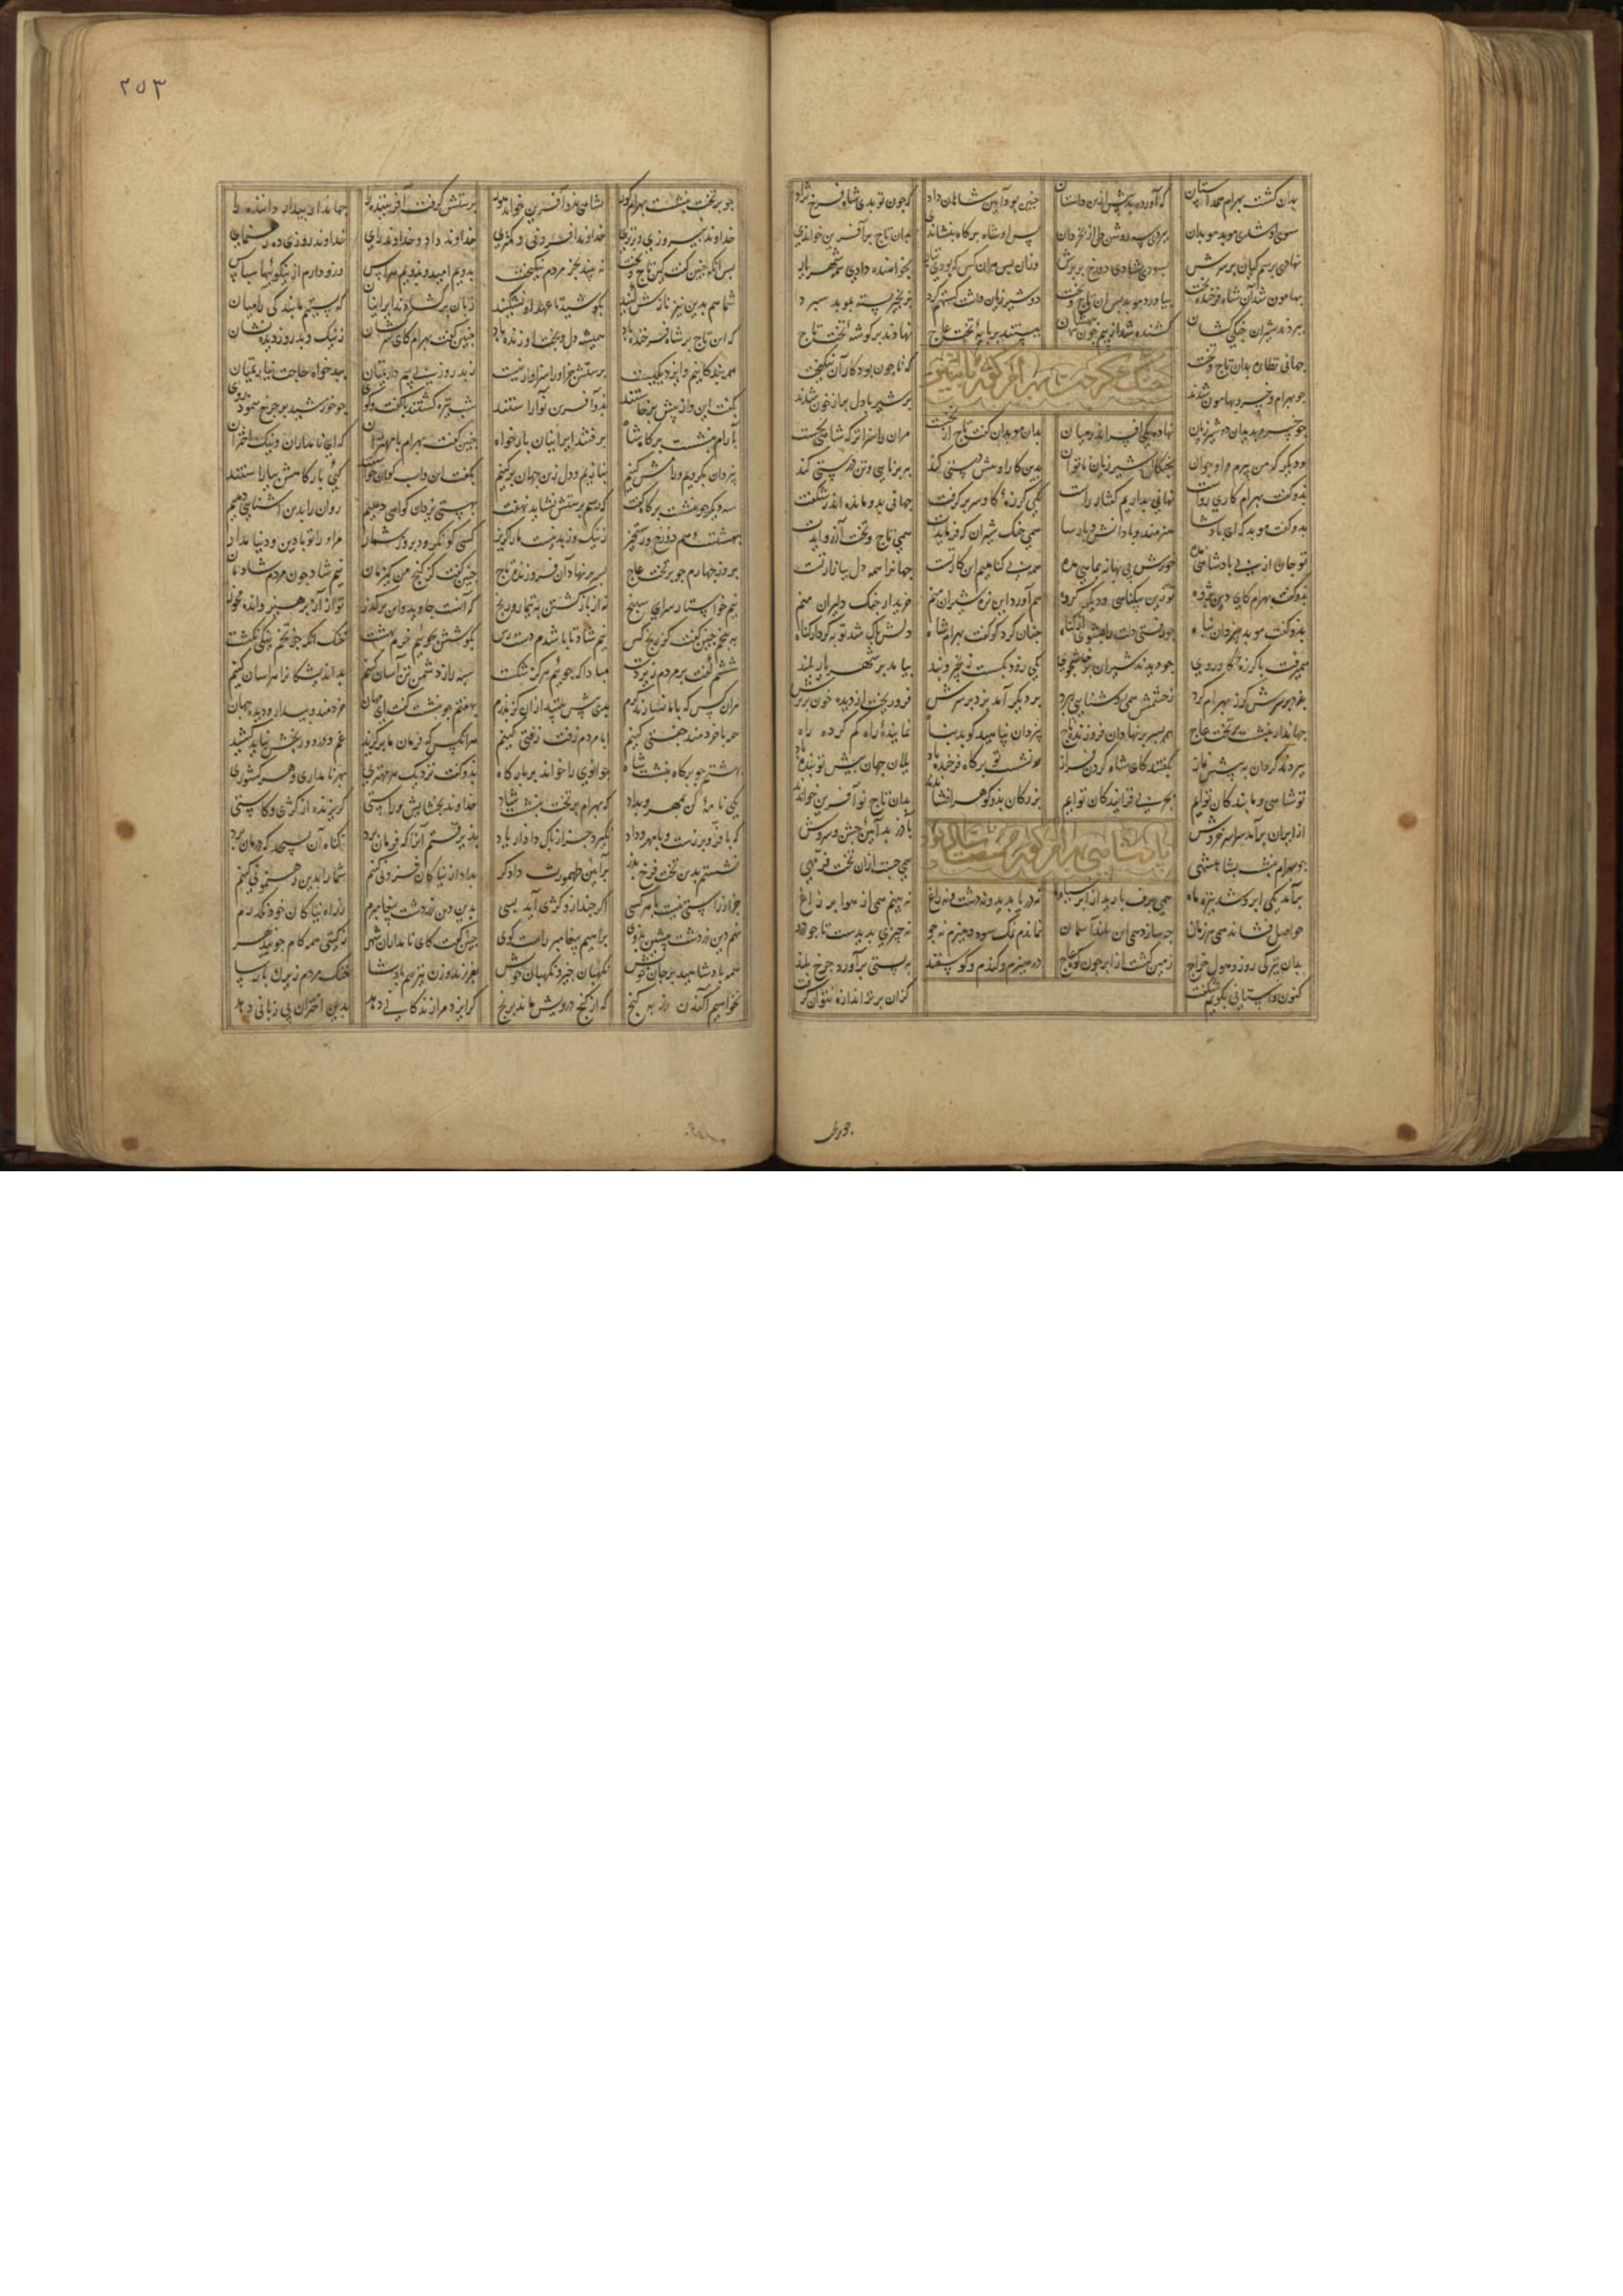 بدان گشت بهرام همداستان که آورد پیش ازین داستان چنین بود آیین شاهان داد که چون نو بدی شاه فرخ نژاد
سوی او شدی موبد موبدان ببردی سه روشن دل از بخردان پس او شاه بر گاه بنشاندی بدان تاج بر آفرین خواندی
نهادی برسم کیان بر سرش بسودی بشادی دو رخ بر برش وزان پس هر آن کس که بودی نثار بخواهنده دادی همی شهریار
بهامون شد آن شاه فرخنده بخت بیاورد موبد پس آن تاج و تخت دو شیر ژیان داشت گستهم گرد بزنجیر بسته بموبد سپرد
ببردند شیران جنگی کشان کشنده شد از بیم چون بیهشان ببستند بر پایهٔ تخت عاج نهادند بر گوشهٔ تخت تاج
جهانی نظاره بدان تاج و تخت که تا چون بود کار آن نیکبخت
جنگ کردن بهرام گور با شیران
چو بهرام و خسرو بهامون شدند بر شیر با دل پر از خون شدند
چو خسرو بدید آن دو شیر ژیان نهاده یکی افسر اندر میان بدان موبدان گفت تاج از نخست مر آن را سزاتر که شاهی بجست
و دیگر که من پیرم و او جوان بچنگال شیر ژیان ناتوان بدین کار او پیش دستی کند به برنایی و تن درستی کند
بدو گفت بهرام کاری رواست نهانی نداریم گفتار راست یکی گرزهٔ گاو سر بر گرفت جهانی بدو مانده اندر شگفت
بدو گفت موبد که ای پادشا هنرمند و با دانش و پارسا همی جنگ شیران که فرمایدت همی تاج و تخت آرزو آیدت
تو جان از پی پادشاهی مده خورش بی بهانه بماهی مده همه بی گناهیم این کار تست جهان را همه دل ببازار تست
بدو گفت بهرام کای دین پژوه تو زین بیگناهی و دیگر گروه هم آورد این نره شیران منم خریدار جنگ دلیران منم
بدو گفت موبد بیزدان پناه چو رفتی دلت را بشوی از گناه چنان کرد کو گفت بهرام شاه دلش پاک شد توبه کرد از گناه
همی رفت با گرزهٔ گاو روی چو دیدند شیران پرخاشجوی یکی زود بگسست زنجیر و بند بیامد بر شهریار بلند
بزد بر سرش گرز بهرام گرد ز چشمش همی روشنایی ببرد بر دیگر آمد بزد بر سرش فرو ریخت از دیده خون بر برش
جهاندار بنشست بر تخت عاج بسر بر نهاد آن فروزنده تاج بیزدان پناهید کو بد پناه نمایندهٔ راه گم کرده راه
ببردند گردان به پیشش نماز بگفتند کای شاه گردن فراز نو نشست تو بر گاه فرخنده باد یلان جهان پیش تو بنده باد
تو شاهی و ما بندگان توایم بخوبی فزایندگان توایم بزرگان برو گوهر افشاندند بدان تاج نو آفرین خواندند
از ایران برآمد سراسر خروش بآذر بد آیین جشن و سروش
پادشاهی بهرام گور شصت سال بود
چو بهرام بنشست بشاهنشهی همی جست ازان تخت فر مهی
برآمد یکی ابر و شد تیره ماه همی برف بارید از ابر سیاه نه دریا پدید و نه دشت و نه راغ نه بینم همی از هوا پر زاغ
حواصل فشاند همی هر زمان چه سازد همی این بلند آسمان نماندم نمک سود و هیزم نه جو نه چیزی پدیدست تا جو درو
بدین تیرگی روز و هول خراج زمین گشت از ابر چون کوه عاج در هیزم و گندم و گوسفند به بستی برآورد چرخ بلند
کنون داستانی بگویم شگفت کزان برتر اندازه نتوان گرفت
٢٥٣
چو بر تخت بنشست بهرام گور بشاهی برو آفرین خواند هور پرستش گرفت آفریننده را جهاندار بیدار داننده را
خداوند پیروزی و برتری خداوند افزونی و کمتری خداوند داد و خداوند رای خداوند روزی ده رهنمای
پس آنگه چنین گفت کین تاج و تخت نه بیند بجز مردم نیکبخت بدویم امید و بدویم هراس وزو دارم از نیکوئیها سپاس
شما هم بدین نیز نازش کنید بکوشید تا عهد او نشکنید زبان برگشادند ایرانیان که بستیم ما بندگی را میان
که این تاج بر شاه فرخنده باد همیشه دل و بخت او زنده باد چنین گفت بهرام کای سرکشان ز نیک و بد روز دیده نشان
همه بندگانیم و ایزد یکیست پرستش جز او را سزاوار نیست ز بد روز بی بیم داریمتان ببدخواه حاجت نیاریمتان
بگفت این و از پیش برخاستند برو آفرین نو آراستند شب تیره گشتند با گفت و گوی چو خورشید بر چرخ بنمود روی
بآرام بنشست بر گاه شاه برفتند ایرانیان بارخواه چنین گفت بهرام با مهتران که ای نامداران و نیک اختران
بیزدان بگرویم و رامش کنیم بنازیم و دل زین جهان برکنیم بگفت این و اسب کیان خواستند کیی بارگاهش بیاراستند
سه دیگر چو بنشست بر گاه گفت که رسم پرستش نشاید نهفت بهستی یزدان گواهی دهیم روان را بدین آشنایی دهیم
بهشتست و هم دوزخ و رستخیز ز نیک و ز بد نیست ما را گریز کسی کو نگرود بروز شمار مر او را تو با دین و دنیا مدار
بروز چهارم چو بر تخت عاج بسر بر نهاد آن فروزنده تاج چنین گفت کز گنج من یکزمان نیم شاد چون مردم شادمان
نیم خواستار سرای سپنج نه از بازگشتن به تیمار و رنج که آنست جاوید و این برگذر تو از آز پرهیز و انده مخور
به پنجم چنین گفت کز رنج کس نیم شاد تا باشدم دست رس بکوشش بجوییم خرم بهشت خنک آنکه جز تخم نیکی نکشت
ششم گفت بر مردم زیر دست مبادا که جوییم هرگز شکست سپه را ز دشمن تن آسان کنیم بداندیشگان را هراسان کنیم
بهفتم چو بنشست گفت ای مهان خردمند و بیدار و دیده جهان
هر آن کس که فرمان ما برگزید غم و درد و رنجش نباید کشید
بهشتم چو بر گاه بنشست شاه جوانوی را خواند بر بارگاه بدو گفت نزدیک هر مهتری بهر نامداری و هر کشوری
یکی نامه کن بمهر و بداد که بهرام بر تخت بنشست شاد خداوند بخشایش و راستی گریزنده از کژی و کاستی
که با فر و برزست و با مهر و داد نگیرد جز از پاک دادار یاد پذیرفتم آن را که فرمان برد گناه آن سگالد که درمان برد
نشستم بدین تخت فرخ پدر بر آیین طهمورث دادگر بداد از نیاکان فزونی کنم شما را بدین رهنمونی کنم
جز از راستی نیست با هر کسی اگر چند ازو کژی آید بسی بدین دین زردشت پیغامبرم ز راه نیاکان خود نگذرم
نهم دین زردشت پیشین بروی براهیم پیغامبر راست گوی چنین گفت کای نامداران شهر ز گیتی همه کام جویید بهر
همه پادشاهید بر جان خویش نگهبان چیز و نگهبان خویش بفرزند و زن نیز هم پادشا خنک مردم زیرک پارسا
نخواهیم آگندن زر به گنج که از گنج درویش ماند برنج گر ایزد مرا زندگانی دهد بدین اختران بی زیانی دهد